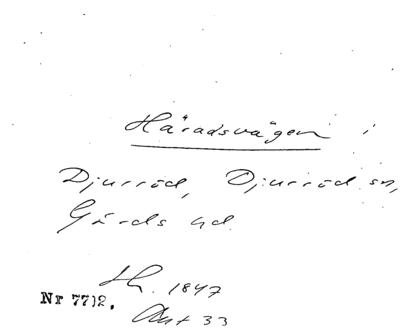 Häradsvägen i
Djurröd, Djurröd sn,
Gärds hd.
1847
Nr 7712.
Akt 33